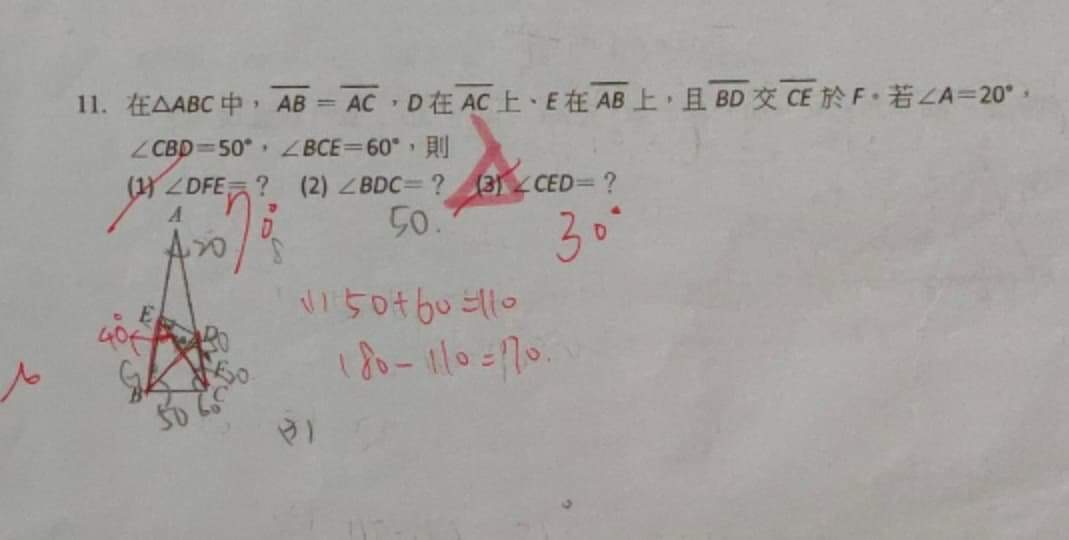 11. 在△ABC 中,AB = AC,D 在 AC 上、E 在 AB 上,且 BD 交 CE 於 F。若∠A=20°,
∠CBD=50°,∠BCE=60°,則
(1) ∠DFE=? (2) ∠BDC=? (3) ∠CED=?
70°
50.
30°
A
20
E
40°
D
50
B
C
50 60
(1) 50+60=110
180-110=70.
(3)